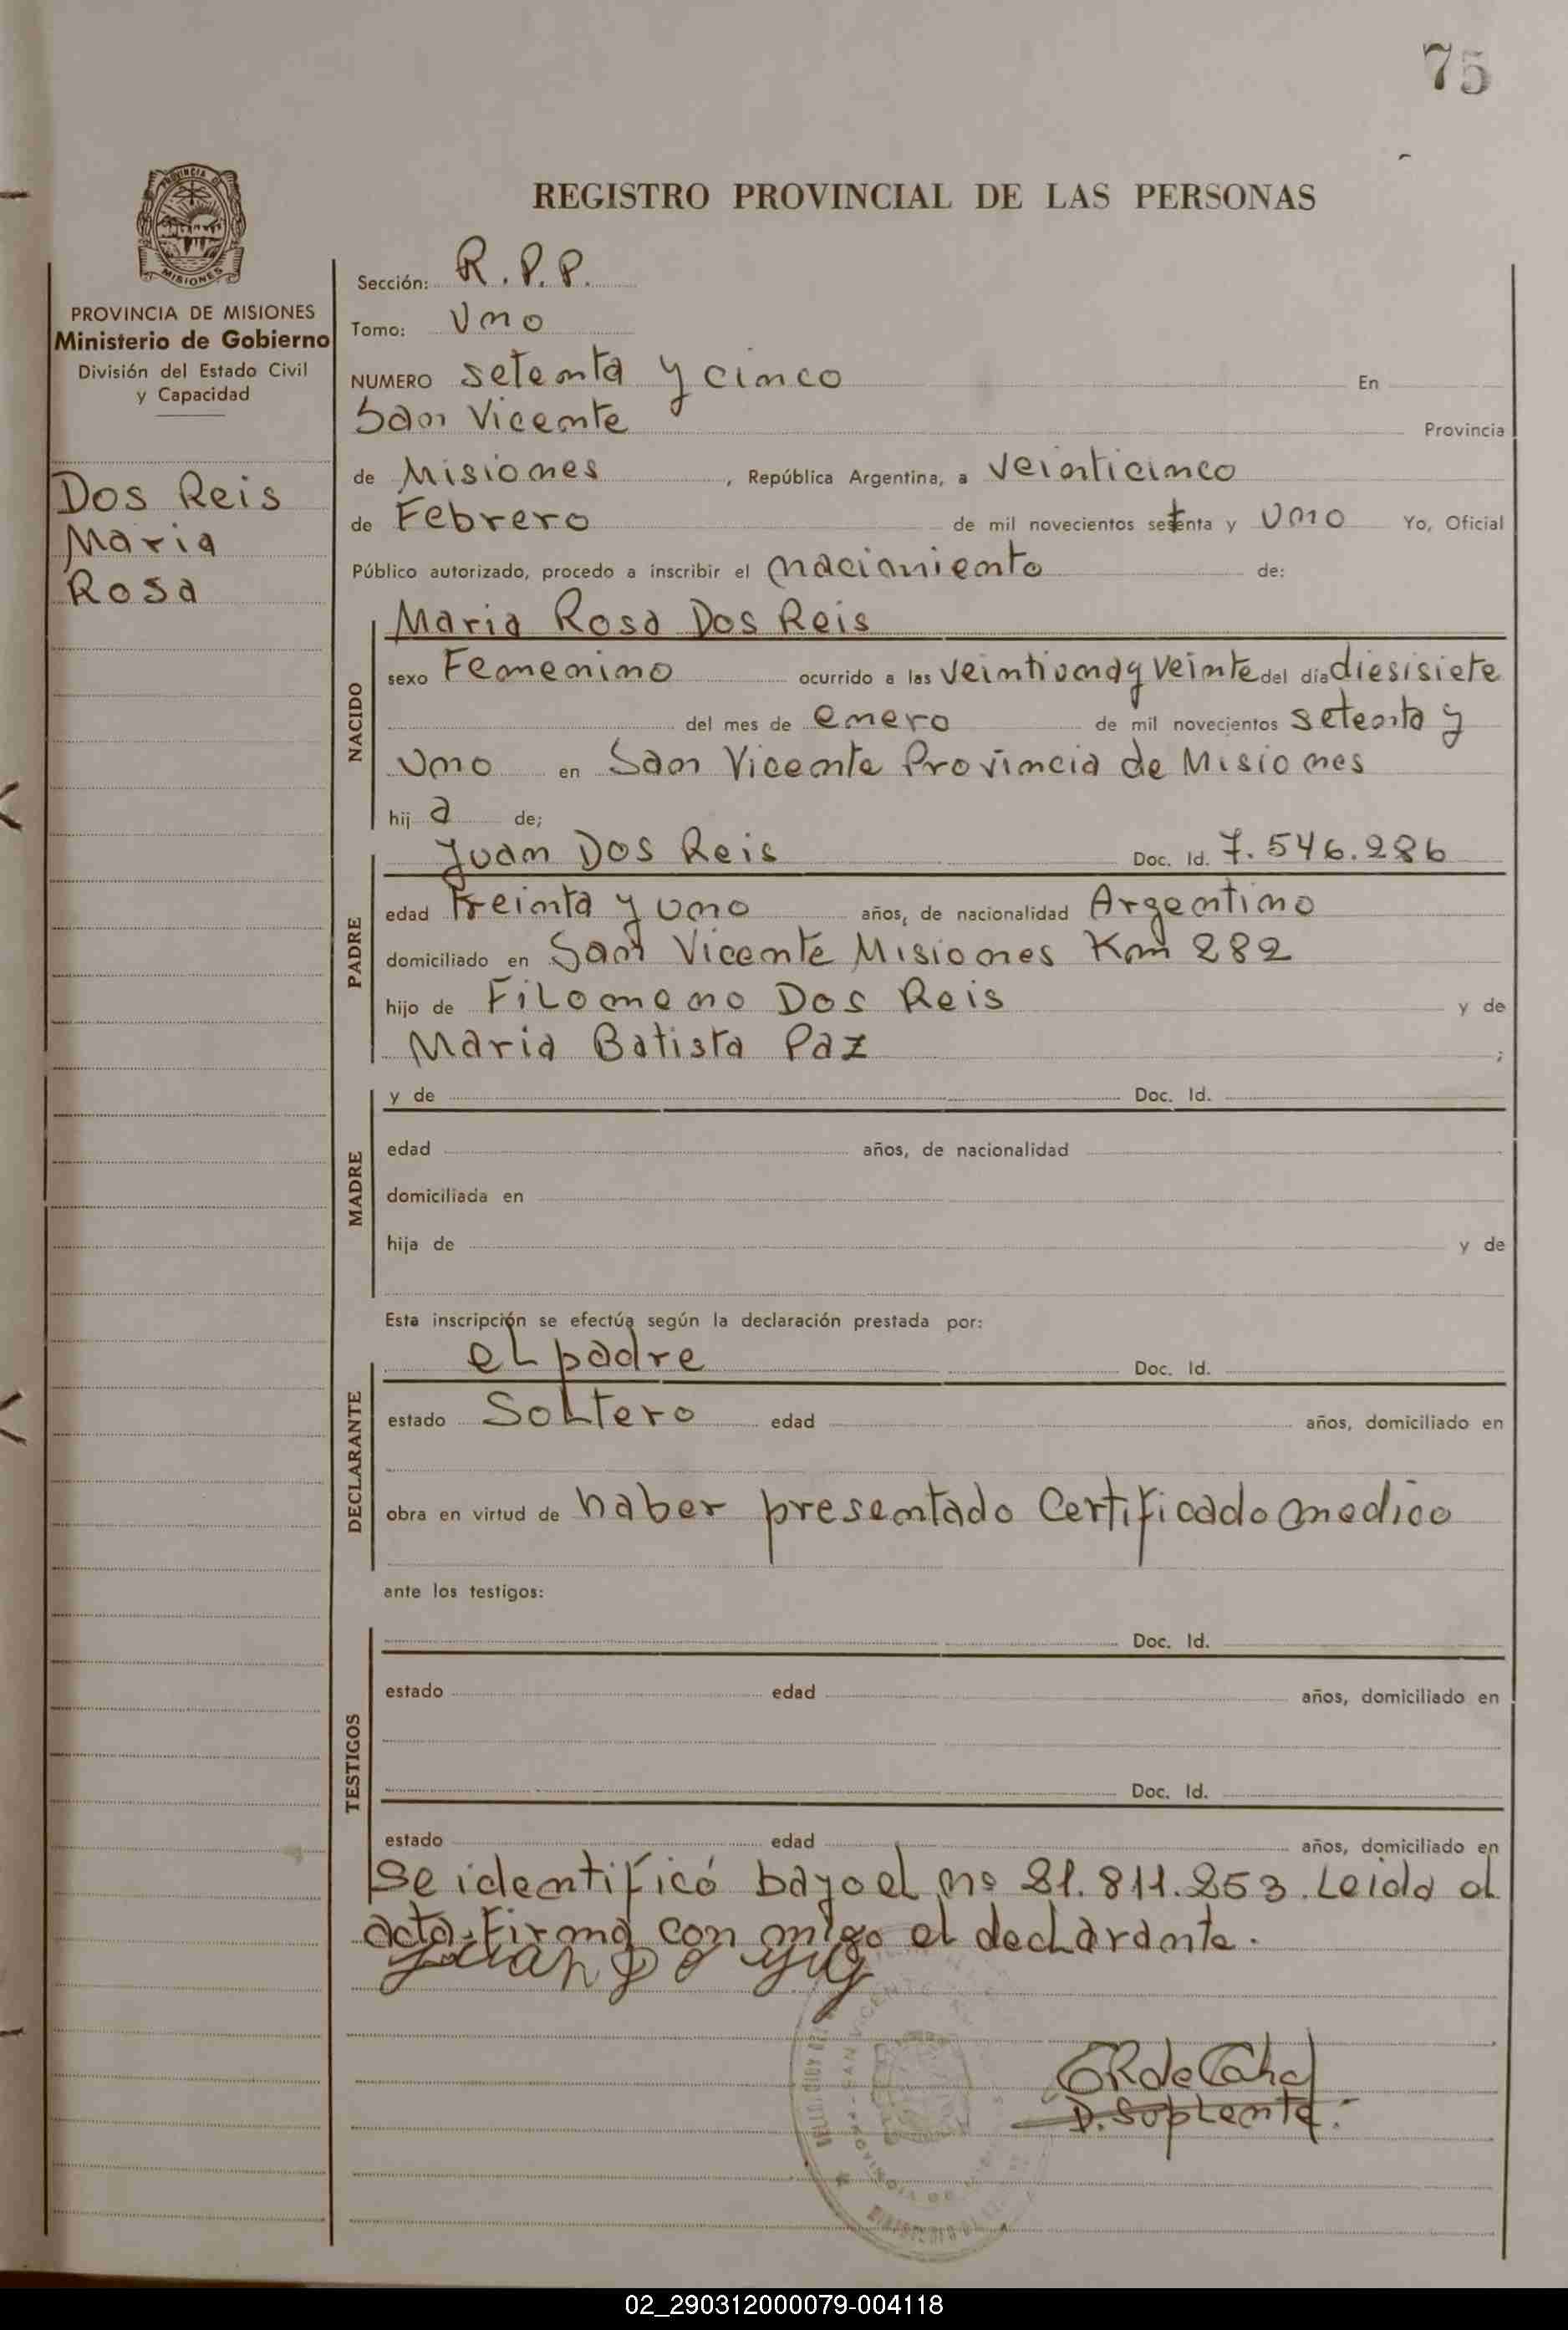 75
REGISTRO PROVINCIAL DE LAS PERSONAS
PROVINCIA DE
MISIONES
PROVINCIA DE MISIONES
Ministerio de Gobierno
División del Estado Civil
y Capacidad
Dos Reis
Maria
Rosa
Sección: R.P.P.
Tomo: Uno
NUMERO setenta y cinco En
San Vicente Provincia
de Misiones, República Argentina, a veinticinco
de Febrero de mil novecientos setenta y uno Yo, Oficial
Público autorizado, procedo a inscribir el nacimiento de:
NACIDO
Maria Rosa Dos Reis
sexo Femenino ocurrido a las veintiuna y veinte del día diesisiete
del mes de enero de mil novecientos setenta y
uno en San Vicente Provincia de Misiones
hij a de;
PADRE
Juan Dos Reis Doc. Id. 7.546.286
edad treinta y uno años, de nacionalidad Argentino
domiciliado en San Vicente Misiones Km 282
hijo de Filomeno Dos Reis y de
Maria Batista Paz ;
MADRE
y de Doc. Id.
edad años, de nacionalidad
domiciliada en
hija de y de
Esta inscripción se efectúa según la declaración prestada por:
DECLARANTE
el padre Doc. Id.
estado Soltero edad años, domiciliado en
obra en virtud de haber presentado Certificado medico
ante los testigos:
TESTIGOS
Doc. Id.
estado edad años, domiciliado en
Doc. Id.
estado edad años, domiciliado en
Se identificó bajo el nº 21.811.253. Leida el
acta, Firma con migo el declarante.
D. Suplente.
02_290312000079-004118